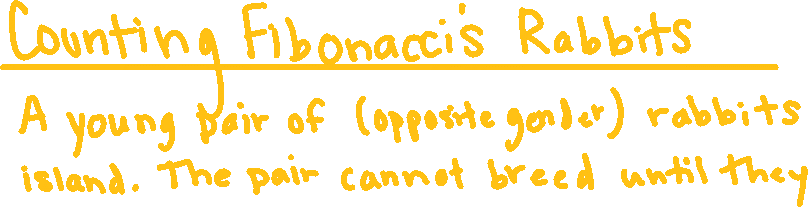 Counting Fibonacci's Rabbits
A young pair of (opposite gender) rabbits
island. The pair cannot breed until they